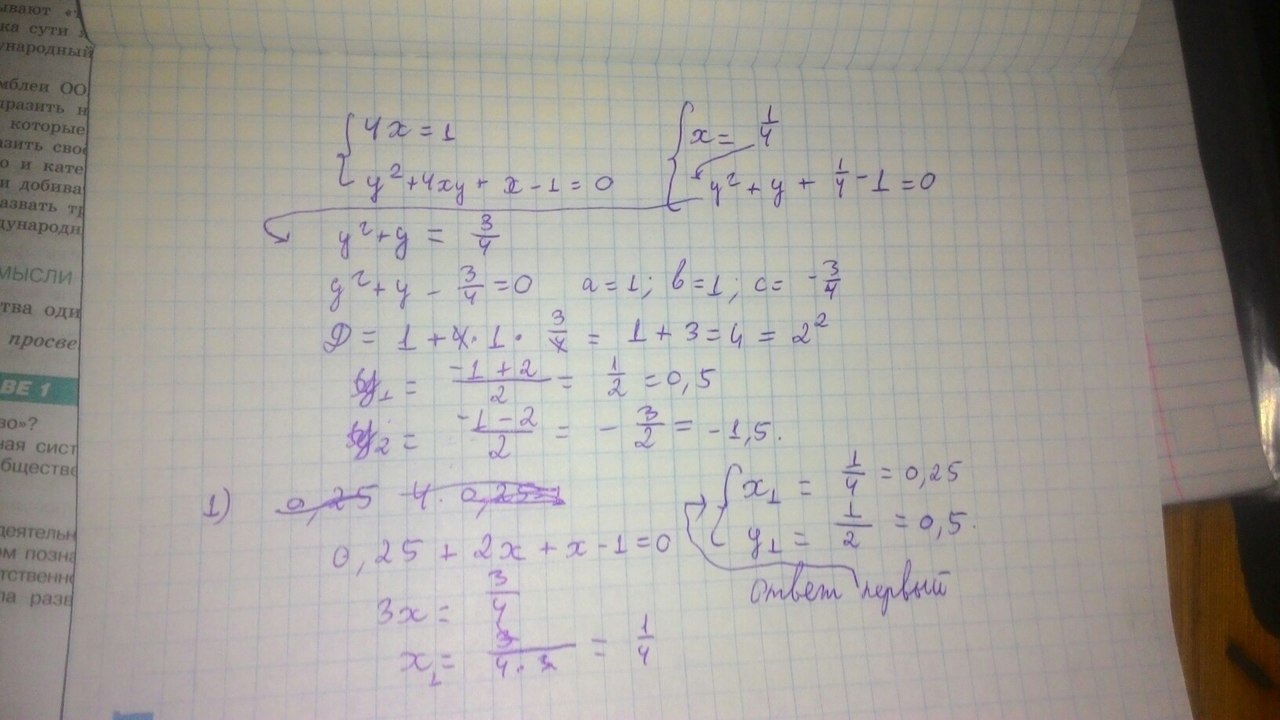 ывают «
ка сути
ународный
мблеи ОО
ыразить н
которые
азить сво
о и кате
и добива
азвать т
дународн
МЫСЛИ
тва оди
просве
ВЕ 1
во»?
ная сист
обществе
деятельн
ом позна
тственн
ла разв
{ 4x = 1
y² + 4xy + x - 1 = 0
{ x = 1/4
y² + y + 1/4 - 1 = 0
y² + y = 3/4
y² + y - 3/4 = 0 a = 1; b = 1; c = -3/4
D = 1 + 4 · 1 · 3/4 = 1 + 3 = 4 = 2²
y₁ = (-1 + 2)/2 = 1/2 = 0,5
y₂ = (-1 - 2)/2 = - 3/2 = -1,5.
1) 0,25 4 · 0,25
0,25 + 2x + x - 1 = 0
3x = 3/4
x₁ = 3/(4 · 3) = 1/4
{ x₁ = 1/4 = 0,25
y₁ = 1/2 = 0,5.
ответ первый